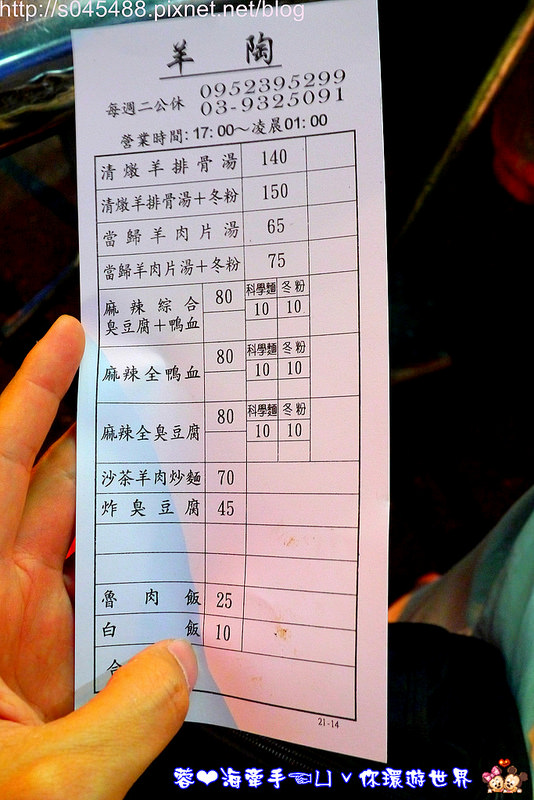 http://s045488.pixnet.net/blog
羊 陶
每週二公休 0952395299
03-9325091
營業時間:17:00～凌晨01:00
清燉羊排骨湯 140
清燉羊排骨湯＋冬粉 150
當歸羊肉片湯 65
當歸羊肉片湯＋冬粉 75
麻辣綜合 80 科學麵 冬粉
臭豆腐＋鴨血 10 10
麻辣全鴨血 80 科學麵 冬粉
10 10
麻辣全臭豆腐 80 科學麵 冬粉
10 10
沙茶羊肉炒麵 70
炸臭豆腐 45
魯肉飯 25
白飯 10
合
21-14
蓉❤海牽手☜凵ˇ你環遊世界